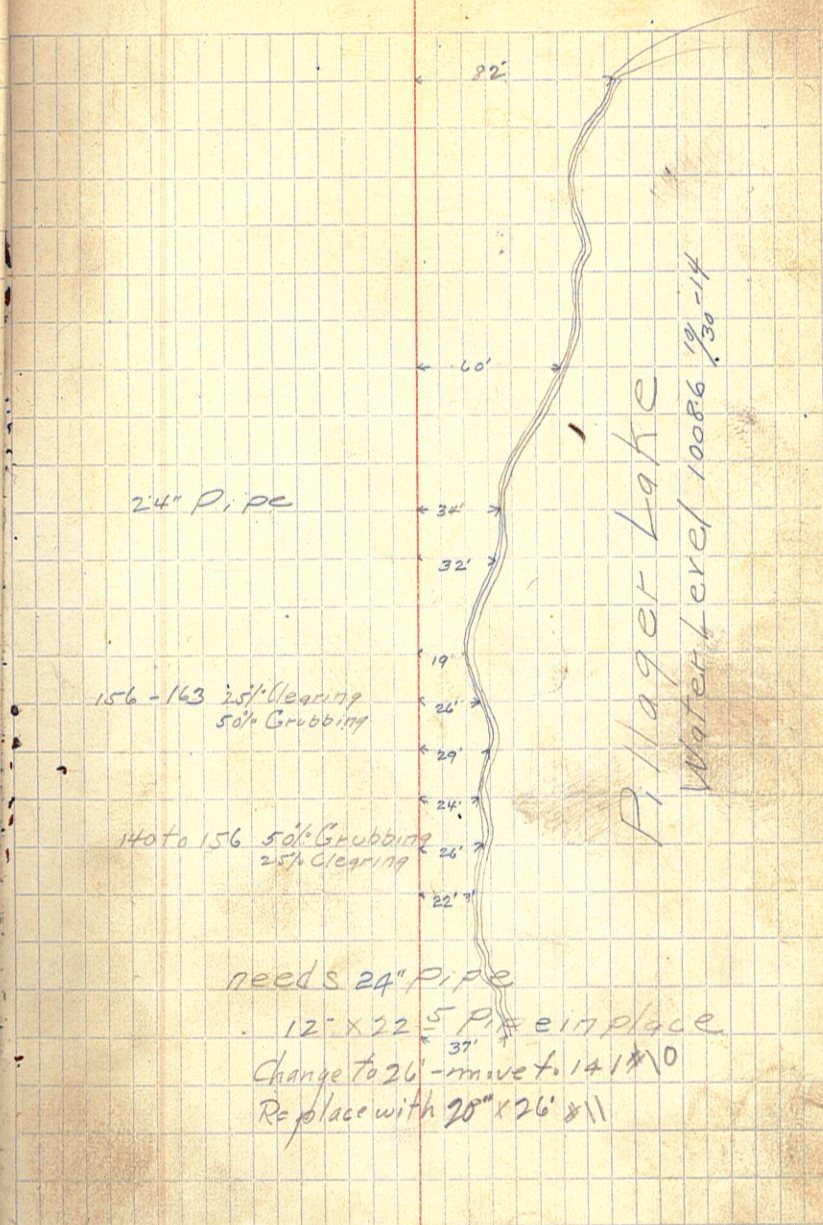 82'
60'
24" Pipe
34'
32'
19'
156 - 163 25% Clearing
50% Grubbing
26'
29'
24'
140 to 156 50% Grubbing
25% Clearing
26'
22'
needs 24" Pipe
12" x 22 5 Pipe in place
37'
Change to 26' - move to 141
Replace with 20" x 26'
Pillager Lake
Water Level 1008.6 10/30-14